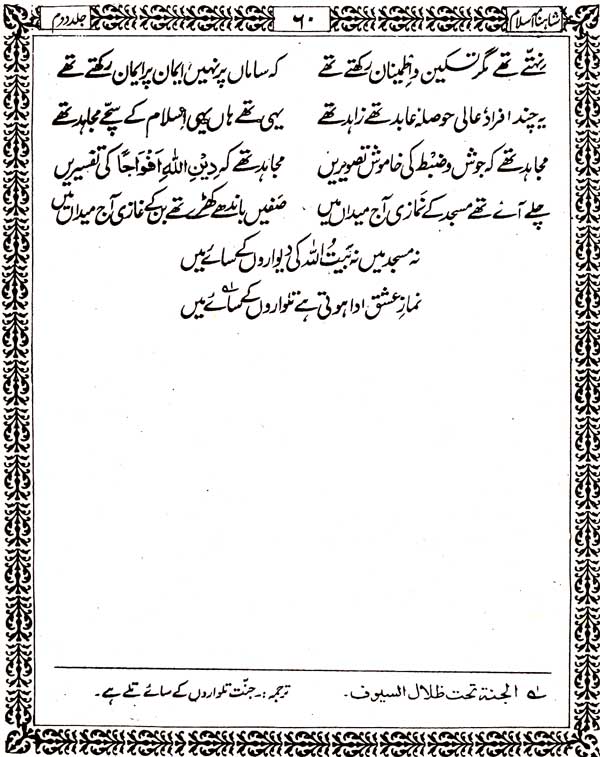 شاہنامہ اسلام ۶۰ جلد دوم
نہتّے تھے مگر تسکین و اطمینان رکھتے تھے کہ ساماں پر نہیں ایمان پر ایمان رکھتے تھے
یہ چند افراد عالی حوصلہ عابد تھے زاہد تھے یہی تھے ہاں یہی اسلام کے سچے مجاہد تھے
مجاہد تھے کہ جوش و ضبط کی خاموش تصویریں مجاہد تھے کہ دِیْنِ اللّٰہِ اَفْوَاجًا کی تفسیریں
چلے آئے تھے مسجد کے نمازی آج میداں میں صفیں باندھے کھڑے تھے بن کے غازی آج میداں میں
نہ مسجد میں نہ بَیتُ اللہ کی دیواروں کے سائے میں
نمازِ عشق ادا ہوتی ہے تلواروں کے سائے میں ؎۱
؎۱ الجنة تحت ظلال السيوف۔ ترجمہ:۔ جنّت تلواروں کے سائے تلے ہے۔